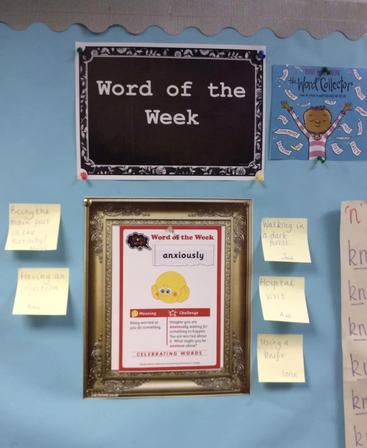 Word of the
Week
the Word Collector
Being the
main part
in the
nativity!
Having an
injection
Word of the Week
anxiously
Meaning
Being worried as
you do something.
Challenge
Imagine you are
anxiously waiting for
something to happen.
You are worried about
it. What might you be
anxious about?
CELEBRATING WORDS
Walking in
a dark
forest
Hospital
visit
Using a
knife
"n"
kn
kn
kn
kn
k